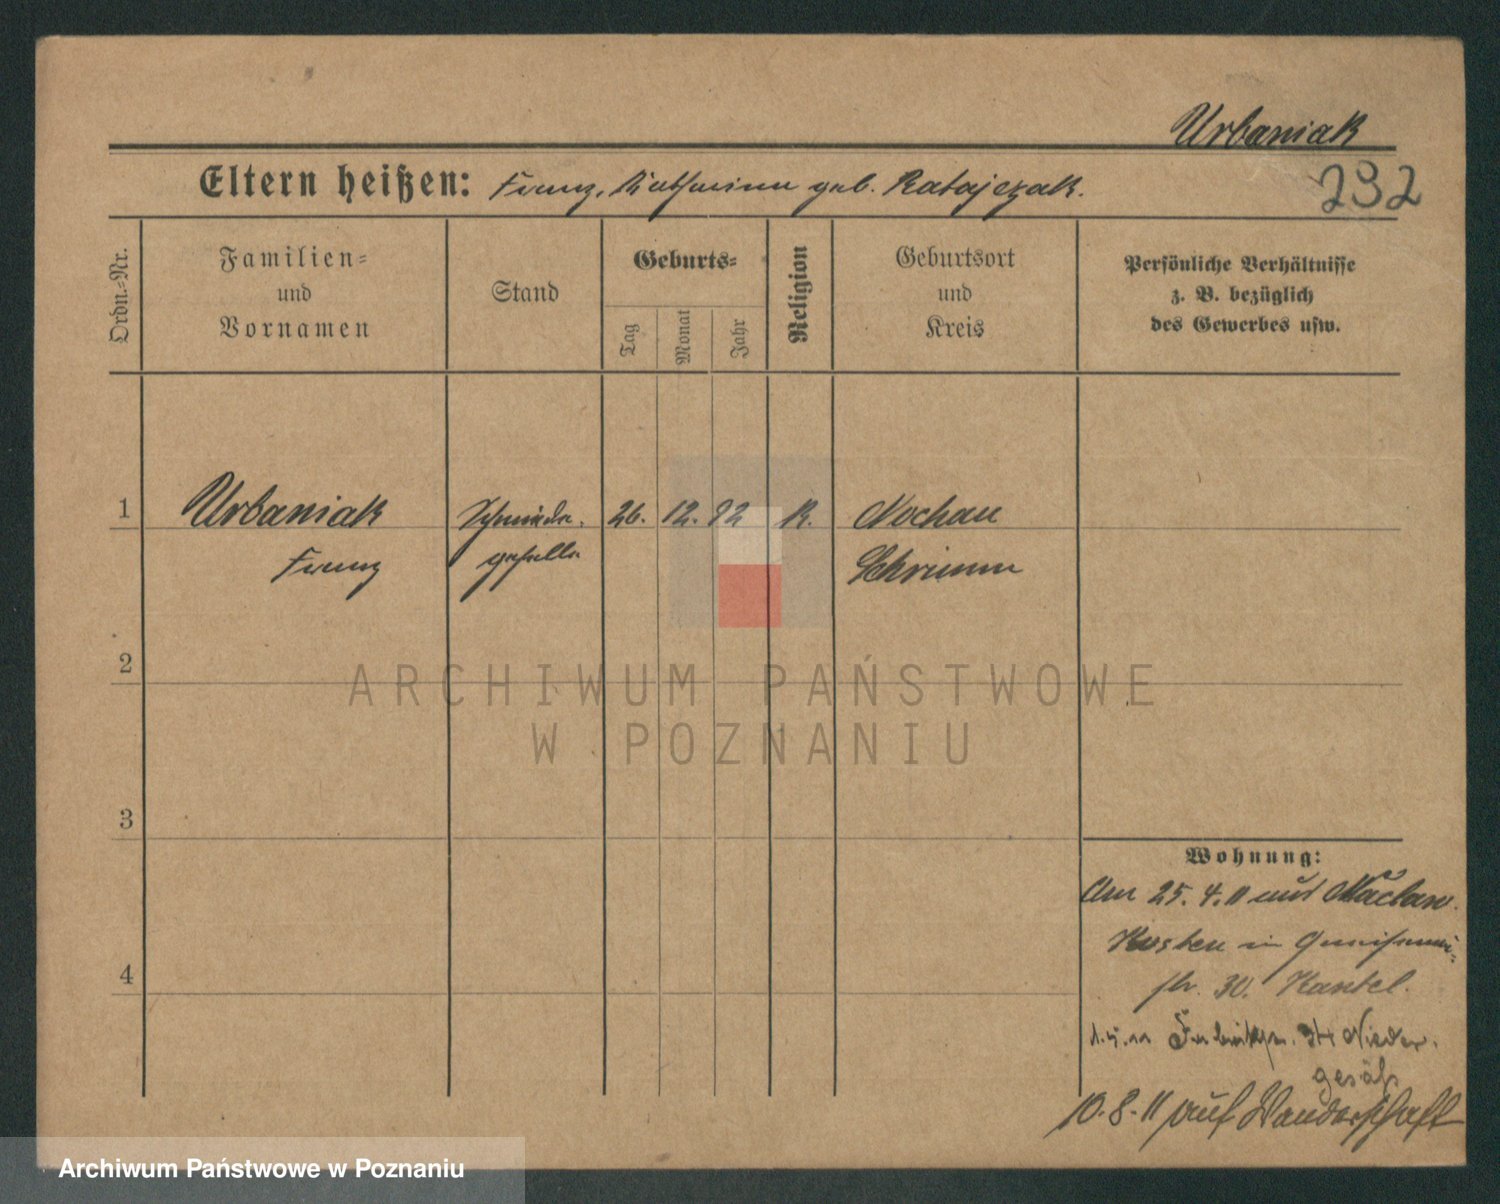 Urbaniak
Eltern heißen: Franz, Katharina geb. Ratajczak.
232
Ordn.=Nr.
Familien=
und
Vornamen
Stand
Geburts=
Tag
Monat
Jahr
Religion
Geburtsort
und
Kreis
Persönliche Verhältnisse
z. B. bezüglich
des Gewerbes usw.
1
Urbaniak
Franz
Schmiede.
geselle
26. 12. 92
K.
Nochau
Schrimm
2
ARCHIWUM PAŃSTWOWE
W POZNANIU
3
4
Wohnung:
Am 25. 4. 11 aus
Kosten in Gneisenau=
str. 30. Kantel.
1.5.11 34 Nieder.
gesäß
10. 8. 11 auf Wanderschaft
Archiwum Państwowe w Poznaniu